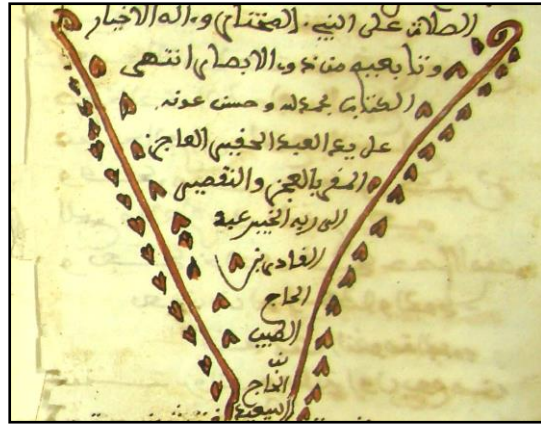 الصلاة على النبي المختار وءاله الاخيار
وتابعيه من ذوي الابصار انتهى
الكتاب بحمد الله وحسن عونه
على يد العبد الحقير العاجز
المقر بالعجز والتقصير
الى ربه الخبير عبد
القادر بن
الحاج
الطيب
بن
الحاج
السعيد